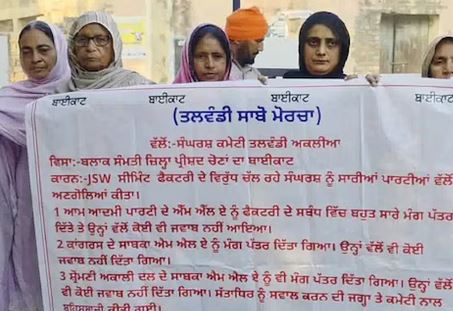 ਬਾਈਕਾਟ ਬਾਈਕਾਟ ਬਾਈਕਾਟ ਬਾਈਕਾਟ
(ਤਲਵੰਡੀ ਸਾਬੋ ਮੋਰਚਾ)
ਵੱਲੋਂ:-ਸੰਘਰਸ਼ ਕਮੇਟੀ ਤਲਵੰਡੀ ਅਕਲੀਆ
ਵਿਸ਼ਾ:-ਬਲਾਕ ਸੰਮਤੀ ਜ਼ਿਲ੍ਹਾ ਪ੍ਰੀਸ਼ਦ ਚੋਣਾਂ ਦਾ ਬਾਈਕਾਟ
ਕਾਰਨ:-JSW ਸੀਮਿੰਟ ਫੈਕਟਰੀ ਦੇ ਵਿਰੁੱਧ ਚੱਲ ਰਹੇ ਸੰਘਰਸ਼ ਨੂੰ ਸਾਰੀਆਂ ਪਾਰਟੀਆਂ ਵੱਲੋਂ
ਅਣਗੋਲਿਆਂ ਕੀਤਾ।
1 ਆਮ ਆਦਮੀ ਪਾਰਟੀ ਦੇ ਐੱਮ ਐੱਲ ਏ ਨੂੰ ਫੈਕਟਰੀ ਦੇ ਸਬੰਧ ਵਿੱਚ ਬਹੁਤ ਸਾਰੇ ਮੰਗ ਪੱਤਰ
ਦਿੱਤੇ ਤੇ ਉਨ੍ਹਾਂ ਵੱਲੋਂ ਕੋਈ ਵੀ ਜਵਾਬ ਨਹੀਂ ਆਇਆ।
2 ਕਾਂਗਰਸ ਦੇ ਸਾਬਕਾ ਐਮ ਐਲ ਏ ਨੂੰ ਮੰਗ ਪੱਤਰ ਦਿੱਤਾ ਗਿਆ। ਉਨ੍ਹਾਂ ਵੱਲੋਂ ਵੀ ਕੋਈ
ਜਵਾਬ ਨਹੀਂ ਦਿੱਤਾ ਗਿਆ।
3 ਸ਼੍ਰੋਮਣੀ ਅਕਾਲੀ ਦਲ ਦੇ ਸਾਬਕਾ ਐਮ ਐਲ ਏ ਨੂੰ ਵੀ ਮੰਗ ਪੱਤਰ ਦਿੱਤਾ ਗਿਆ। ਉਨ੍ਹਾਂ ਵੱਲੋਂ
ਵੀ ਕੋਈ ਜਵਾਬ ਨਹੀਂ ਦਿੱਤਾ ਗਿਆ। ਸੱਤਾਧਿਰ ਨੂੰ ਸਵਾਲ ਕਰਨ ਦੀ ਜਗ੍ਹਾ ਤੇ ਕਮੇਟੀ ਨਾਲ
ਕੀਤੀ ਗਈ।